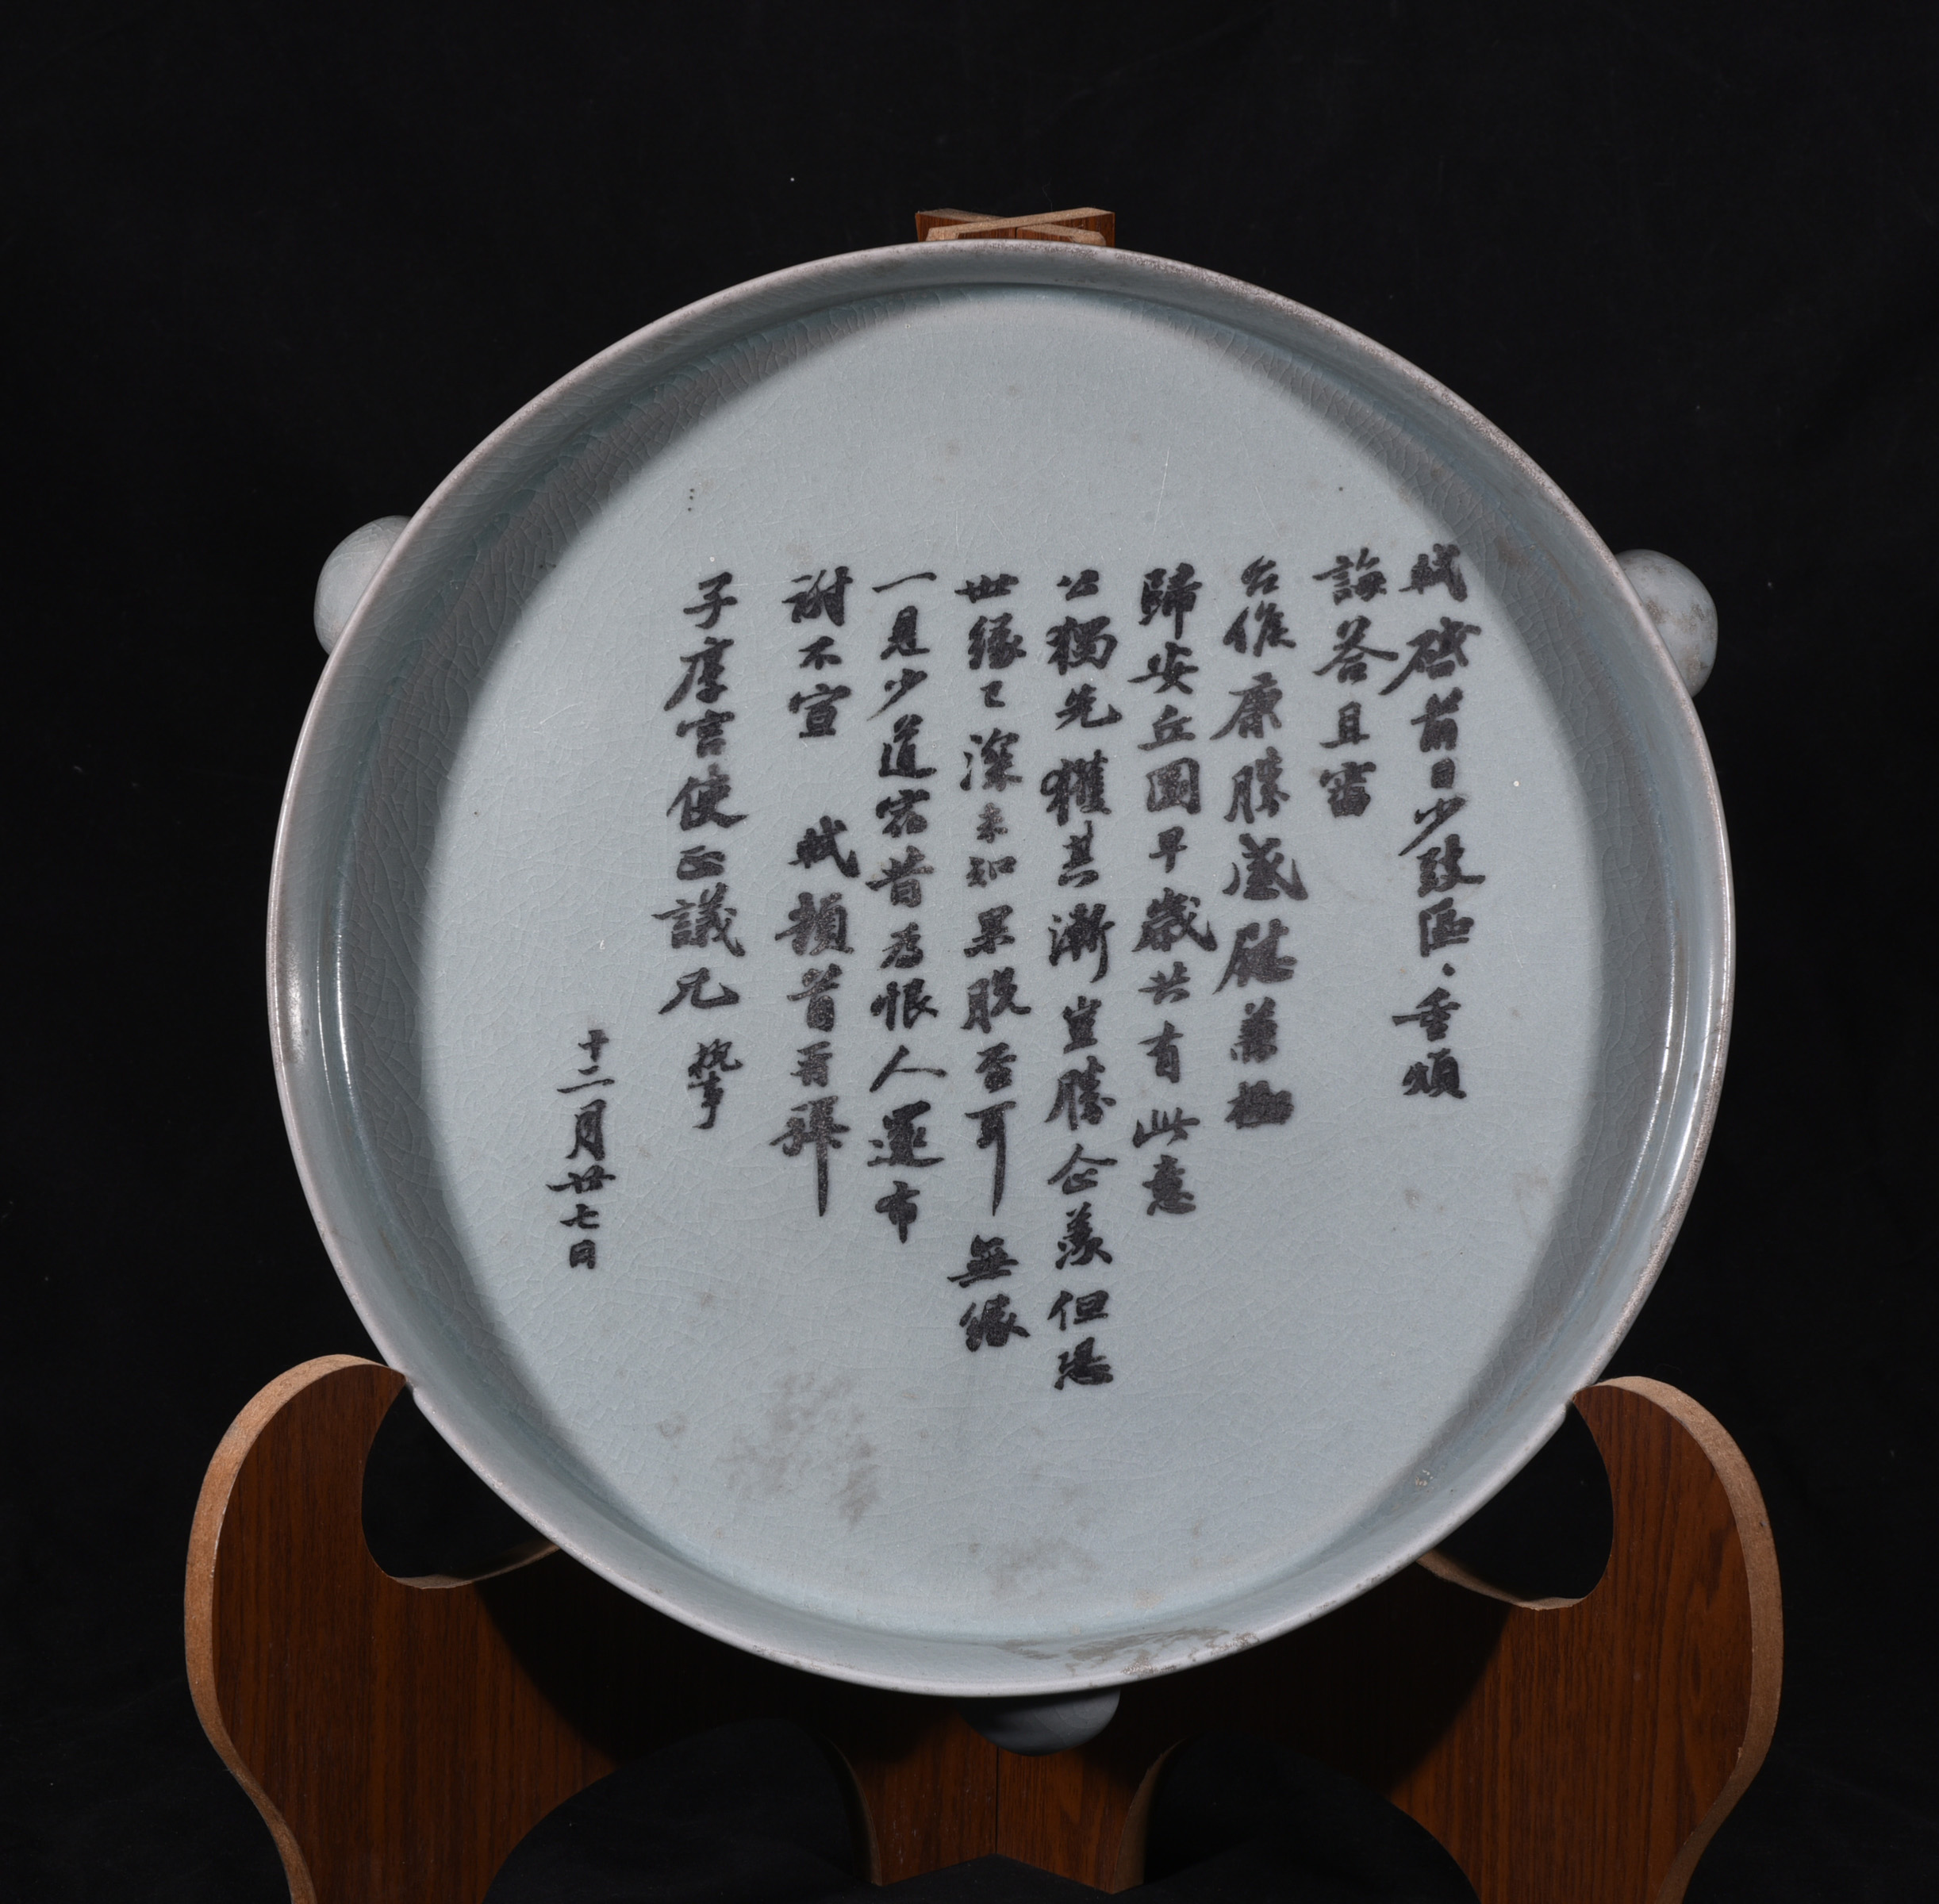 軾啓前日少致區、重煩
誨答且審
台候康勝感慰兼極
歸安丘園早歲共有此意
公獨先獲其漸豈勝企羨但恐
世緣已深未知果脫否耳無緣
一見少道宿昔為恨人還布
謝不宣 軾頓首再拜
子厚宮使正議兄 執事
十二月廿七日